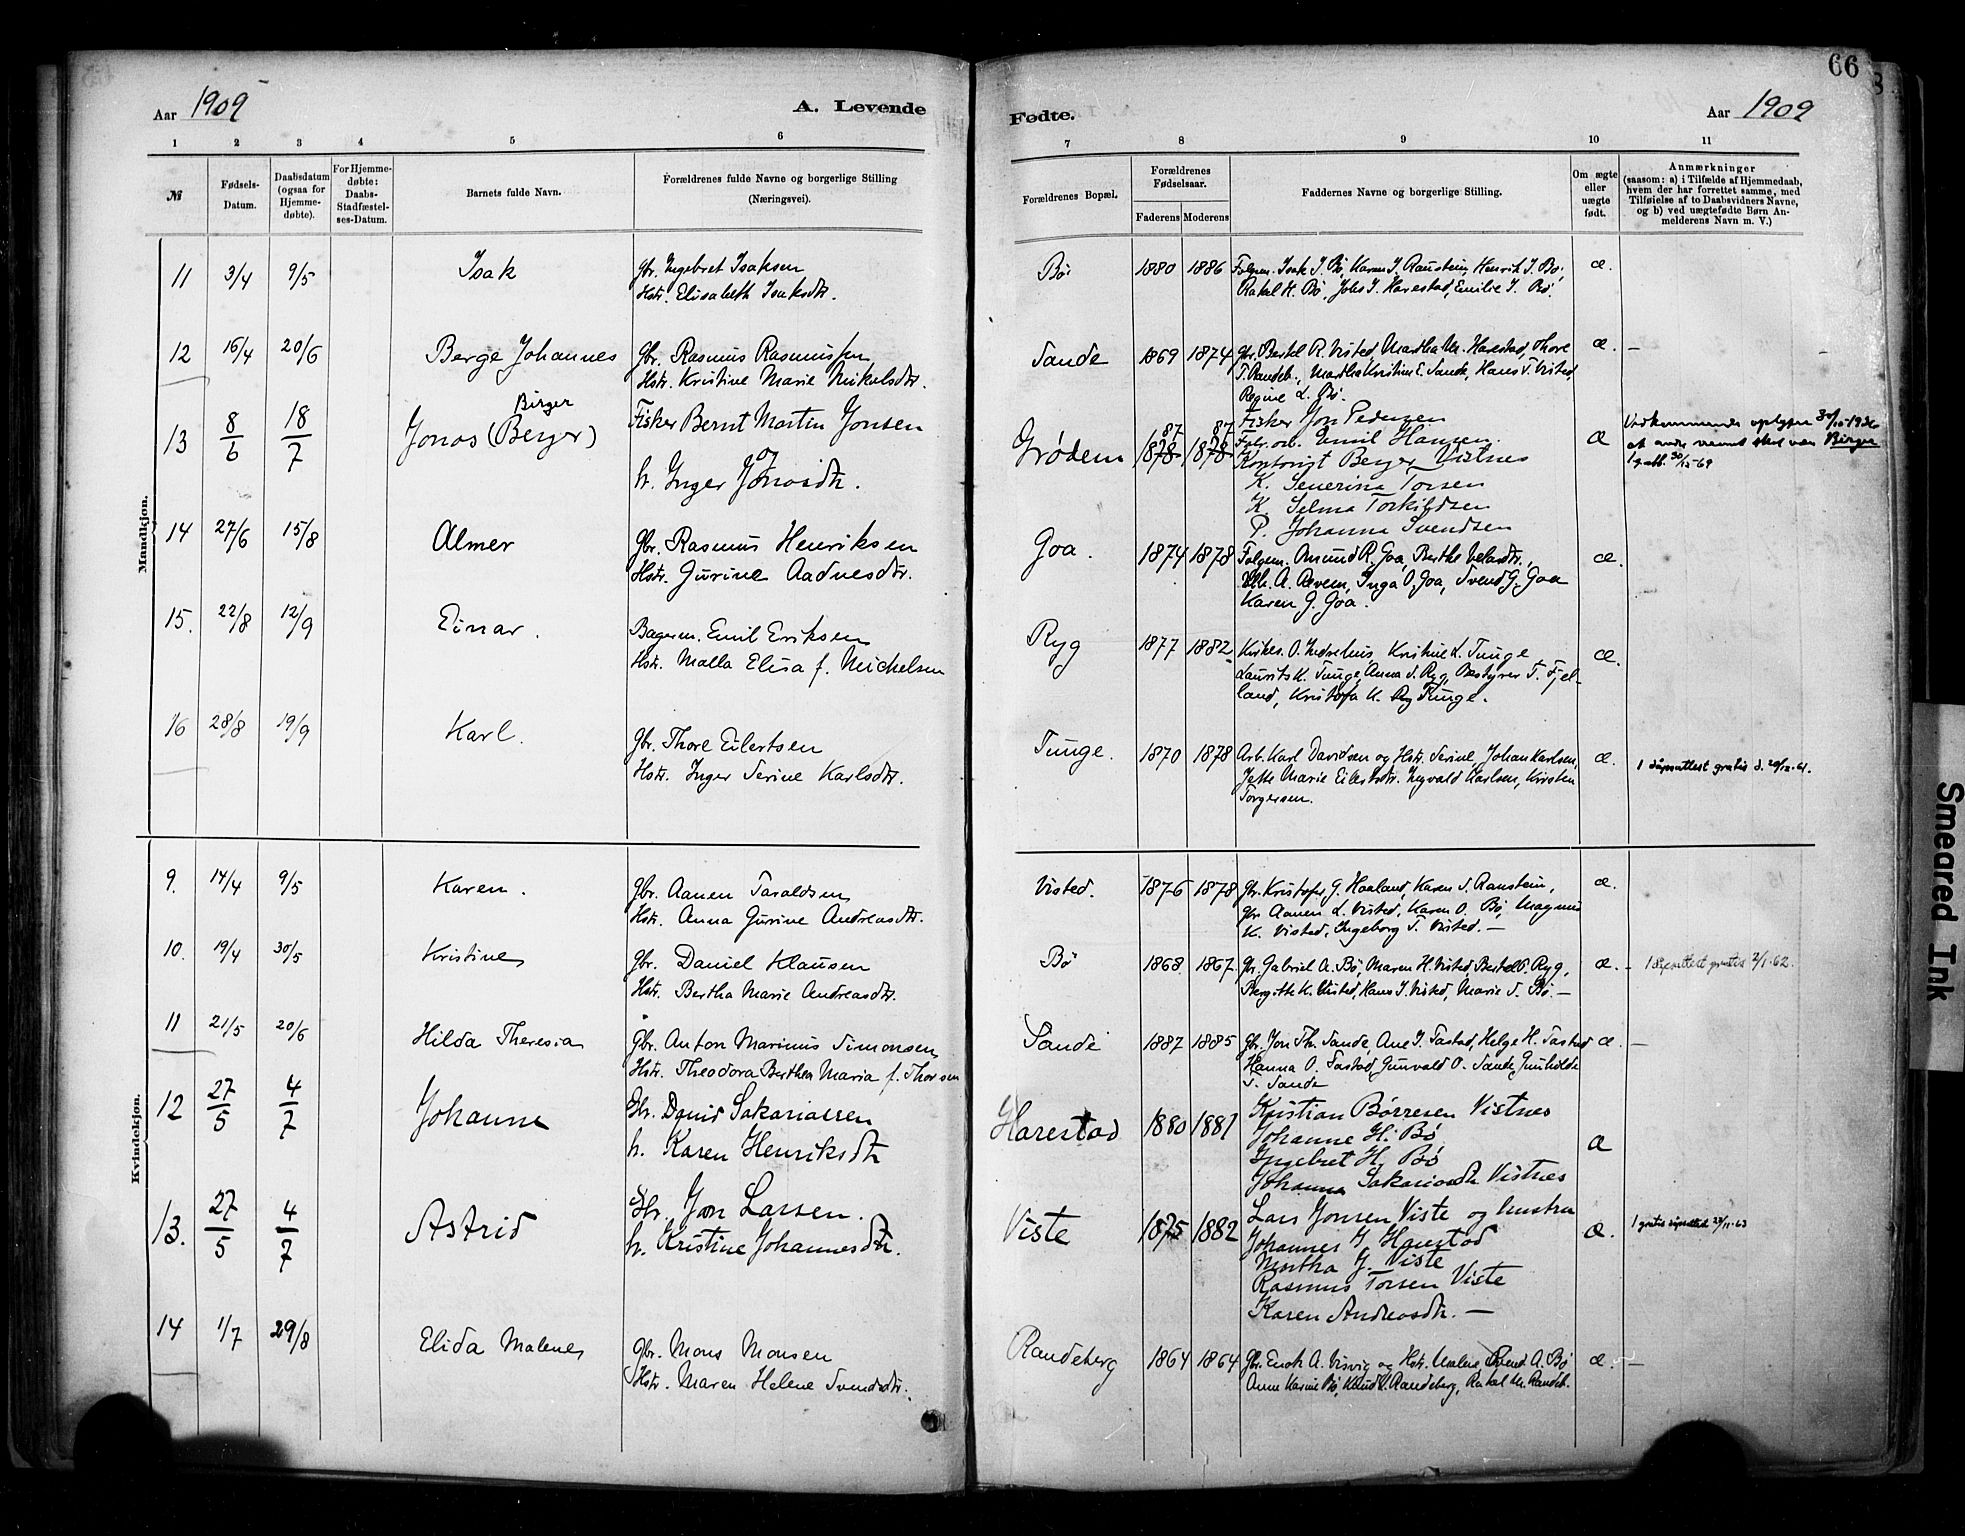 66
8
Aar 1909
A. Levende
Fødte.
Aar 1909
1 2 3 4 5 6 7 8 9 10 11
№
Fødsels-
Datum.
Daabsdatum
(ogsaa for
Hjemme-
døbte).
For Hjemme-
døbte:
Daabs-
Stadfæstel-
ses-Datum.
Barnets fulde Navn.
Forældrenes fulde Navne og borgerlige Stilling
(Næringsvei).
Forældrenes Bopæl.
Forældrenes
Fødselsaar.
Faderens Moderens
Faddernes Navne og borgerlige Stilling.
Om ægte
eller
uægte
født.
Anmærkninger
(saasom: a) i Tilfælde af Hjemmedaab,
hvem der har forrettet samme, med
Tilføielse af to Daabsvidners Navne,
og b) ved uægtefødte Børn An-
melderens Navn m. V.)
Mandkjøn.
11 3/4 9/5 Isak
Gbr. Ingebret Isaksen
Hstr. Elisabeth Isaksdtr.
Bø 1880 1886
Folgem. Isak J. Bø, Karen J. Raustein, Henrik J. Bø,
Rakel H. Bø, Johs J. Harestad, Emilie J. Bø.
æ.
12 16/4 20/6 Berge Johannes
Gbr. Rasmus Rasmussen
Hstr. Kristine Marie Nikolsdtr.
Sande 1869 1874
Gbr. Bertel R. Visted, Martha M. Harestad, Thore
T. Randeb., Martha Kristine E. Sande, Hans T. Visted,
Regine L. Bø.
æ. —
13 8/6 18/7 Jonas (Berger)
Birger
Fisker Bernt Martin Jonsen
og
h. Inger Jonasdtr.
Grødem
87 87
1878 1878
Fisker Jon Pedersen
Fabr. arb. Emil Hansen
Kontorist Berger Vistnes
K. Severina Torsen
K. Selma Torkildsen
P. Johanna Svendsen
æ
Vedkommende oplyser
at andre navnet skal være Birger
14 27/6 15/8 Almer
Gbr. Rasmus Henriksen
Hstr. Gurine Aadnesdtr.
Goa. 1874 1878
Folgem. Amund R. Goa, Berthe Velasdtr.,
A. Revem, Inga O. Goa, Svend G. Goa
Karen G. Goa.
æ.
15. 22/8 12/9 Einar.
Bagerm. Emil Eriksen
Hstr. Malla Elisa f. Michelsen
Ryg 1877 1882
O. Indrehus, Kristine L. Tunge
Laurits K. Tunge, Anna S. Ryg, Bestyrer T. Fjel-
land, Kristofa K. Tunge.
æ.
16 28/8 19/9 Karl.
Gbr. Thore Eilertsen
Hstr. Inger Serine Karlsdtr.
Tunge. 1870 1878
Arb. Karl Davidsen og Hstr. Serine, Johan Karlsen,
Marie Eilertsdtr. Ingvald Karlsen, Kirsten
Torgersen.
æ.
1 dåpsattest gratis d. 29/12-61.
Kvindekjøn.
9. 14/4 9/5 Karen.
Gbr. Aanen Taraldsen
Hstr. Anna Gurine Andreasdtr.
Visted. 1876 1878
Gbr. Kristofer G. Haaland, Karen S. Raustein,
Gbr. Aanen L. Visted, Karen O. Bø, Magnus
K. Visted, Ingeborg T. Visted. —
æ.
10. 19/4 30/5 Kristine
Gbr. Daniel Klausen
Hstr. Bertha Marie Andreasdtr.
Bø 1868 1867
Gbr. Gabriel A. Bø, Maren H. Visted, Bertel O. Ryg,
Bergitte K. Visted, Hans J. Visted, Marie S. Bø. —
æ. -
1 dåpsattest gratis 2/1-62.
11 21/5 20/6 Hilda Theresia
Gbr. Anton Marinus Simonsen
Hstr. Theodora Berthea Maria f. Thorsen
Sande 1887 1885
Gbr. Jon Th. Sande, Ane I. Tastad, Helge H. Tastad
Hanna O. Tastad, Gunvald O. Sande, Gunhilde
T. Sande
æ. —
12 27/5 4/7 Johanne
Gbr. David Sakariassen
h. Karen Henriksdtr
Harestad 1880 1881
Kristian Børresen Vistnes
Johanne H. Bø
Ingebret H. Bø
Johanna Sakariasdtr Vistnes
æ
13. 27/5 4/7 Astrid
Gbr. Jon Larsen.
h. Kristine Johannesdtr.
Viste 1875 1882
Lars Jonsen Viste og hustru
Johannes J. Harestad
Martha J. Viste
Rasmus Torsen Viste
Karen Andreasdtr. —
æ.
1 gratis dåpsattest 23/11-63
14 1/7 29/8 Elida Malene
Gbr. Mons Monsen
Hstr. Maren Helene Svendsdtr.
Randeberg 1864 1864
Gbr. Enok A. Visvig og Hstr. Malene, Svend A. Bø
Anne Karine Bø, Knud V. Randeberg, Rakel M. Randeb.
æ. —
Smeared Ink